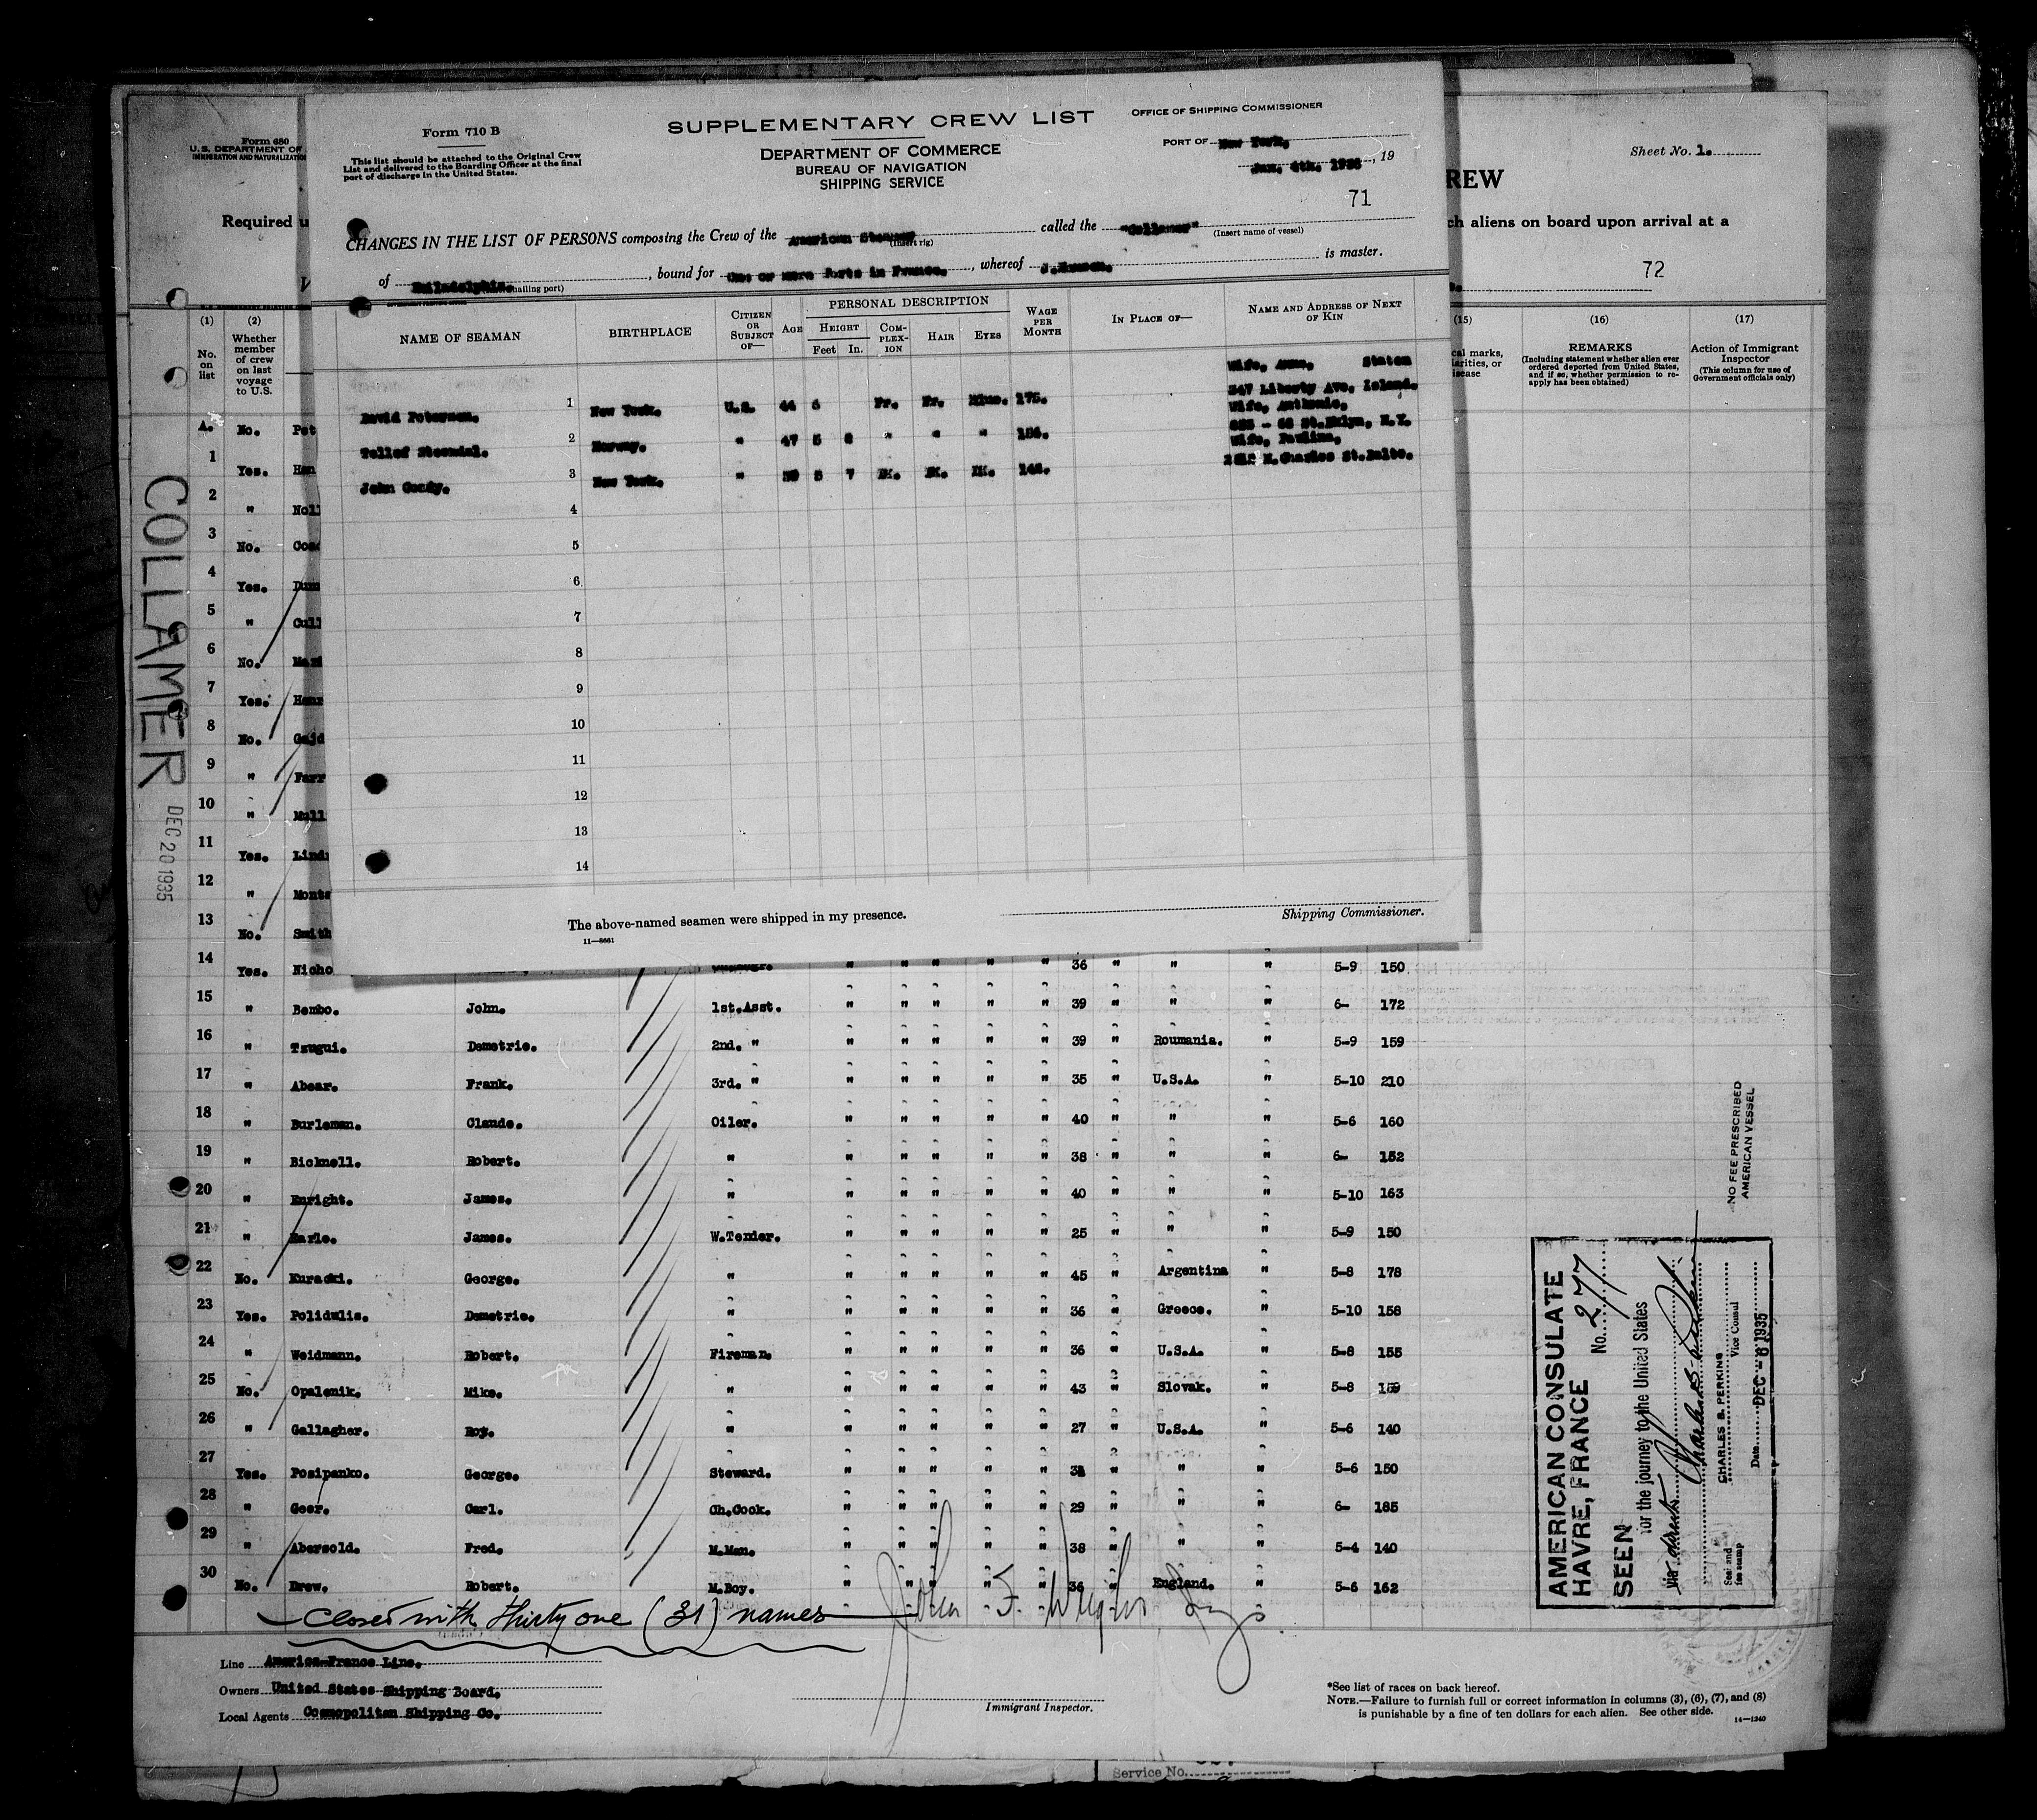 Form 710 B
This list should be attached to the Original Crew
List and delivered to the Boarding Officer at the final
port of discharge in the United States.
SUPPLEMENTARY CREW LIST
DEPARTMENT OF COMMERCE
BUREAU OF NAVIGATION
SHIPPING SERVICE
OFFICE OF SHIPPING COMMISSIONER
PORT OF New York,
Jan. 4th, 1936, 19
71
CHANGES IN THE LIST OF PERSONS composing the Crew of the American Steamer (Insert rig) called the "Collamer" (Insert name of vessel)
of Philadelphia. (Hailing port), bound for One or more Ports in France., whereof J. is master.
NAME OF SEAMAN BIRTHPLACE CITIZEN OR SUBJECT OF— AGE PERSONAL DESCRIPTION HEIGHT Feet In. COMPLEXION HAIR EYES WAGE PER MONTH IN PLACE OF— NAME AND ADDRESS OF NEXT OF KIN
David Peterson. 1 New York. U.S. 44 Fr. Br. Blue. 175. Wife, Anna, Staten
347 Liberty Ave, Island.
2 Norway. " 47 5 " " " Wife,
St. Bklyn, N.Y.
John 3 New York. " 5 7 DK. DK. DK. Wife, Paulina,
N. Charles St. Balto.
4
5
6
7
8
9
10
11
12
13
14
The above-named seamen were shipped in my presence. Shipping Commissioner.
11—8661
Form 680
U.S. DEPARTMENT OF
IMMIGRATION AND NATURALIZATION
Required u
REW
Sheet No. 1.
ch aliens on board upon arrival at a
72
(1) No. on list
(2) Whether member of crew on last voyage to U.S.
(15)
(16) REMARKS (Including statement whether alien ever ordered deported from United States, and if so, whether permission to reapply has been obtained)
(17) Action of Immigrant Inspector (This column for use of Government officials only)
A. No. Pet
1 Yes. Han
2 " Noll
3 No.
4 Yes. Dunn
5 " Cull
6 No.
7 Yes. Henr
8 No. Gajd
9 " Farr
10 " Mull
11 Yes. Lind
12 " Monta
13 No. Smith
14 Yes. Nicho " " " " " 36 " " " 5-9 150
15 " Bembo. John. 1st.Asst. " " " " " 39 " " " 6- 172
16 " Tzugui. Demetrie. 2nd. " " " " " " 39 " Roumania. " 5-9 159
17 " Abear. Frank. 3rd. " " " " " " 35 " U.S.A. " 5-10 210
18 " Burleman. Claude. Oiler. " " " " " 40 " " " 5-6 160
19 " Bicknell. Robert. " " " " " " 38 " " " 6- 152
20 " Enright. James. " " " " " " 40 " " " 5-10 163
21 " Earle. James. W.Tender. " " " " " 25 " " " 5-9 150
22 No. Kuracki. George. " " " " " " 45 " Argentina " 5-8 178
23 Yes. Polidwlis. Demetrie. " " " " " " 36 " Greece. " 5-10 158
24 " Weidmann. Robert. Fireman. " " " " " 36 " U.S.A. " 5-8 155
25 No. Opalenik. Mike. " " " " " " 43 " Slovak. " 5-8 159
26 " Gallagher. Roy. " " " " " " 27 " U.S.A. " 5-6 140
27 Yes. Posipanko. George. Steward. " " " " " " " " 5-6 150
28 " Geer. Carl. Ch.Cook. " " " " " 29 " " " 6- 185
29 " Abersold. Fred. M.Man. " " " " " 38 " " " 5-4 140
30 No. Drew. Robert. M.Boy. " " " " " 36 " England. " 5-6 162
closed with thirty one (31) names
Line America-France Line.
Owners United States Shipping Board.
Local Agents Cosmopolitan Shipping Co.
Immigrant Inspector.
*See list of races on back hereof.
NOTE.—Failure to furnish full or correct information in columns (3), (6), (7), and (8)
is punishable by a fine of ten dollars for each alien. See other side.
14—1240
COLLAMER
DEC 20 1935
NO FEE PRESCRIBED
AMERICAN VESSEL
AMERICAN CONSULATE
HAVRE, FRANCE
SEEN No. 277
for the journey to the United States
via
CHARLES B. PERKINS
Vice Consul
Seal and
fee stamp
Date DEC - 6 1935
Service No.